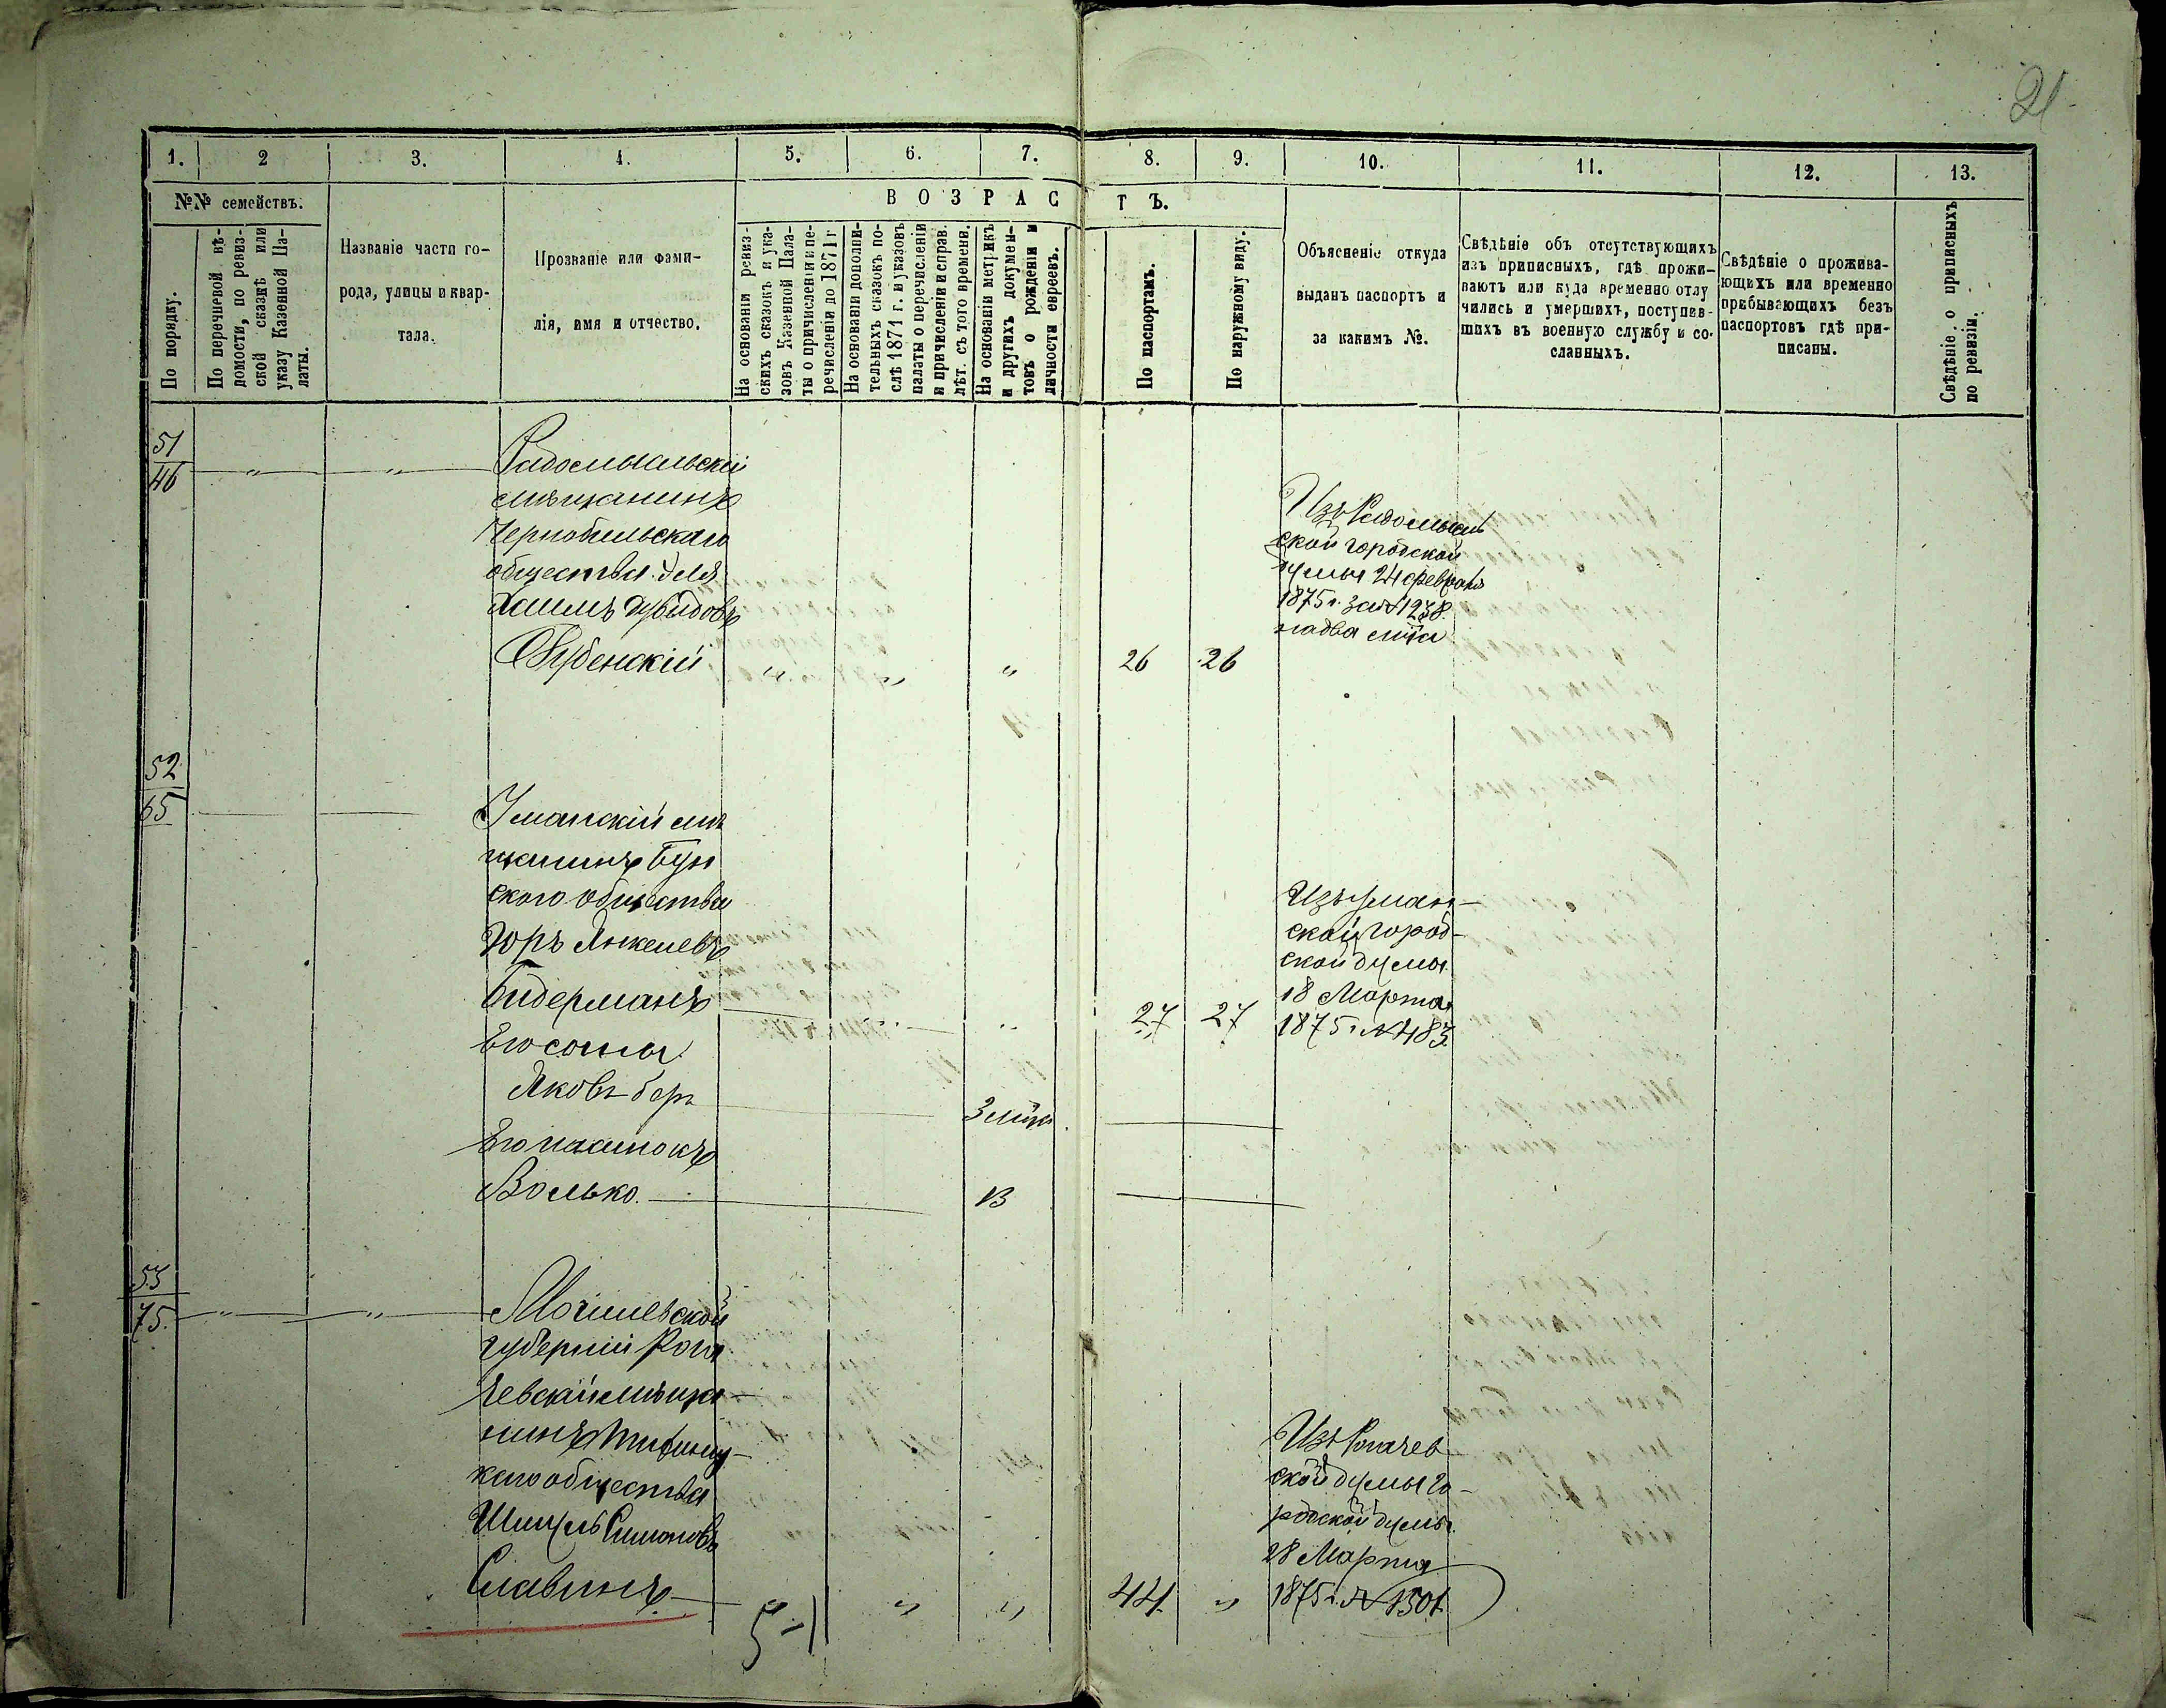 21
1. 2 3. 4. 5. 6. 7. 8. 9. 10. 11. 12. 13.
№№ семействъ.
ВОЗРАСТЪ.
По порядку.
По перечневой вѣ-
домости, по ревиз-
ской сказкѣ или
указу Казенной Па-
латы.
Названіе части го-
рода, улицы и квар-
тала.
Прозваніе или фами-
лія, имя и отчество.
На основаніи ревиз-
скихъ сказокъ и ука-
зовъ Казенной Пала-
ты о причисленіи и пе-
речисленіи до 1871 г
На основаніи дополни-
тельныхъ сказокъ по-
слѣ 1871 г. и указовъ
палаты о перечисленіи
и причисленіи и справ.
лѣт. съ того времени.
На основаніи метрикъ
и другихъ докумен-
товъ о рожденіи и
личности евреевъ.
По паспортамъ.
По наружному виду.
Объясненіе откуда
выданъ паспортъ и
за какимъ №.
Свѣдѣніе объ отсутствующихъ
изъ приписныхъ, гдѣ прожи-
ваютъ или куда временно отлу
чились и умершихъ, поступив-
шихъ въ военную службу и со-
сланныхъ.
Свѣдѣніе о прожива-
ющихъ или временно
пребывающихъ безъ
паспортовъ гдѣ при-
писаны.
Свѣдѣніе о приписныхъ
по ревизіи.
51
46 " "
Радомысльскій
мѣщанинъ
Чернобыльскаго
общества
Хаимъ
Дубенскій " " " 26 26
Изъ Радомысль
ской городской
думы 24 февраля
1875 г. за № 1238.
на два мѣсяца
52
65
Уманскій мѣ
щанинъ Бук
ского общества
Янкелевъ
Бидерманъ " 27 27
Изъ Уман-
ской город-
ской думы
18 Марта
1875 г. № 483.
Его сыны
Яковъ беръ 3
Волько. 13
53
75. " "
Могилевской
губерніи Рога
чевскій мѣща-
нинъ
каго общества
Симоновъ
Славинъ " " " 44 "
Изъ Рогачев
ской думы го-
родской думы.
28 Марта
1875 г. № 1301.